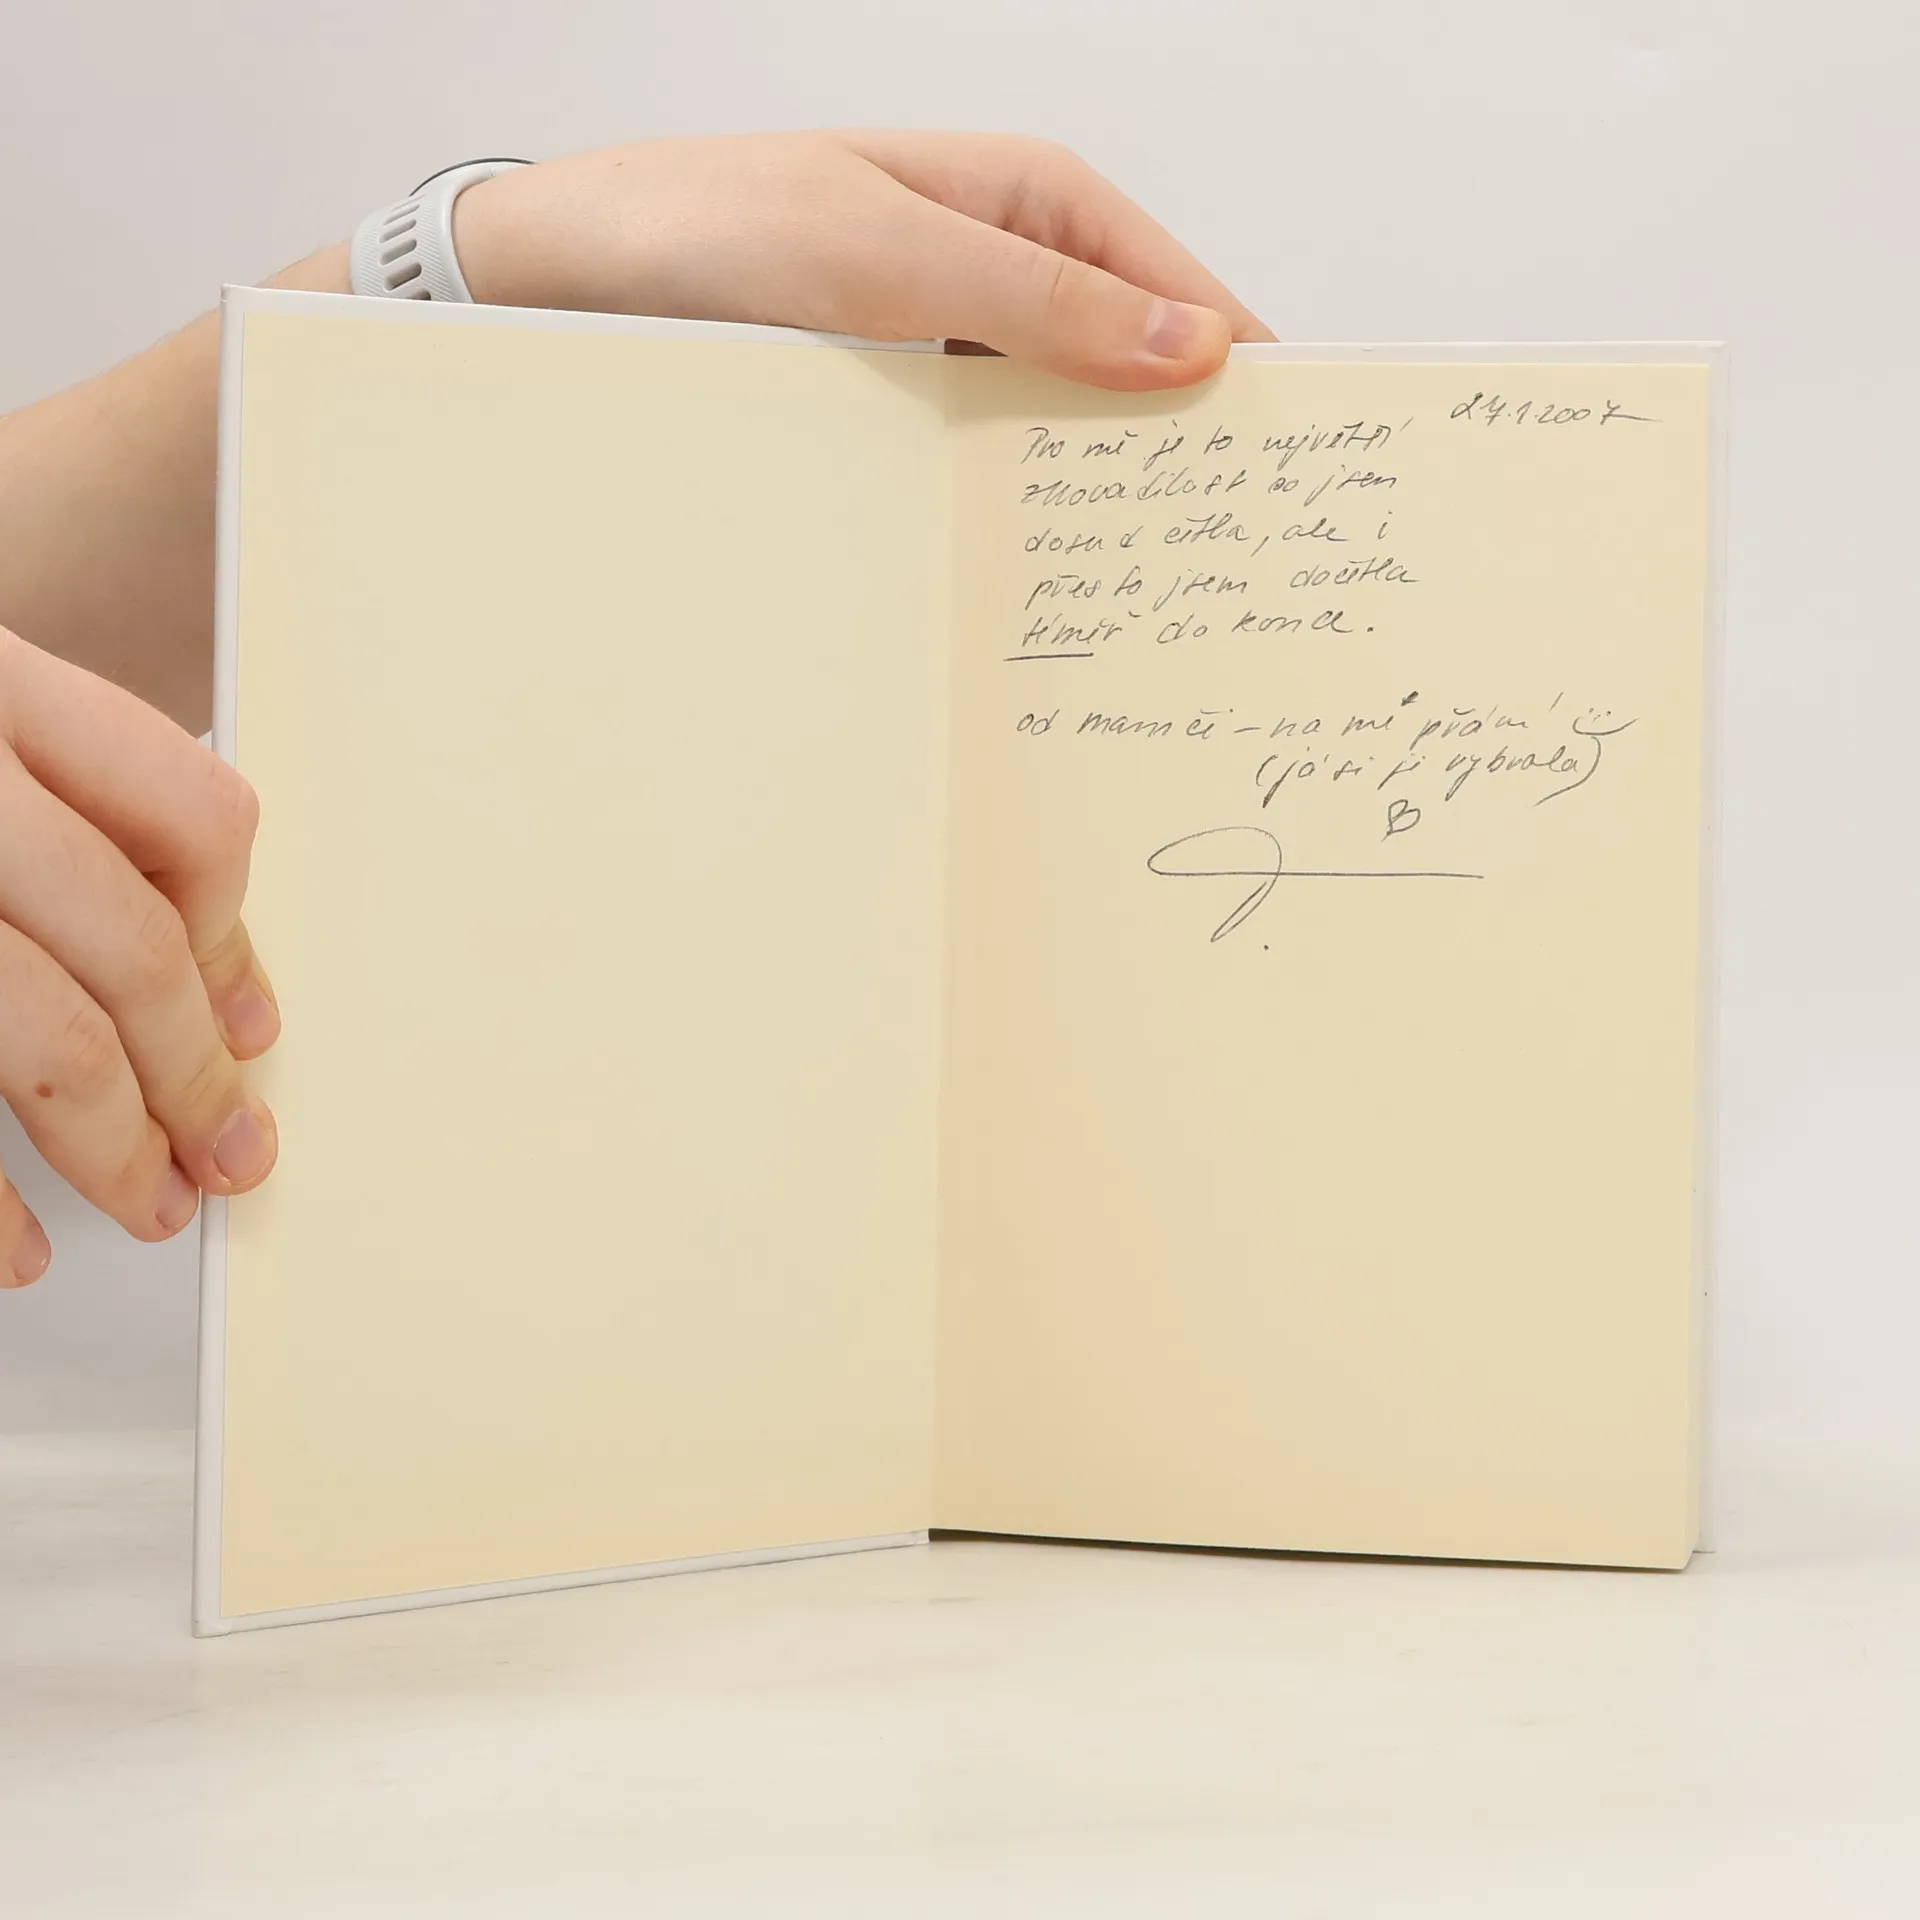 27.1.2007
Pro mě je to největší
zhovadilost co jsem
dosud četla, ale i
přes to jsem dočetla
téměř do konce.
od mamči – na mé přání
(já si ji vybrala)